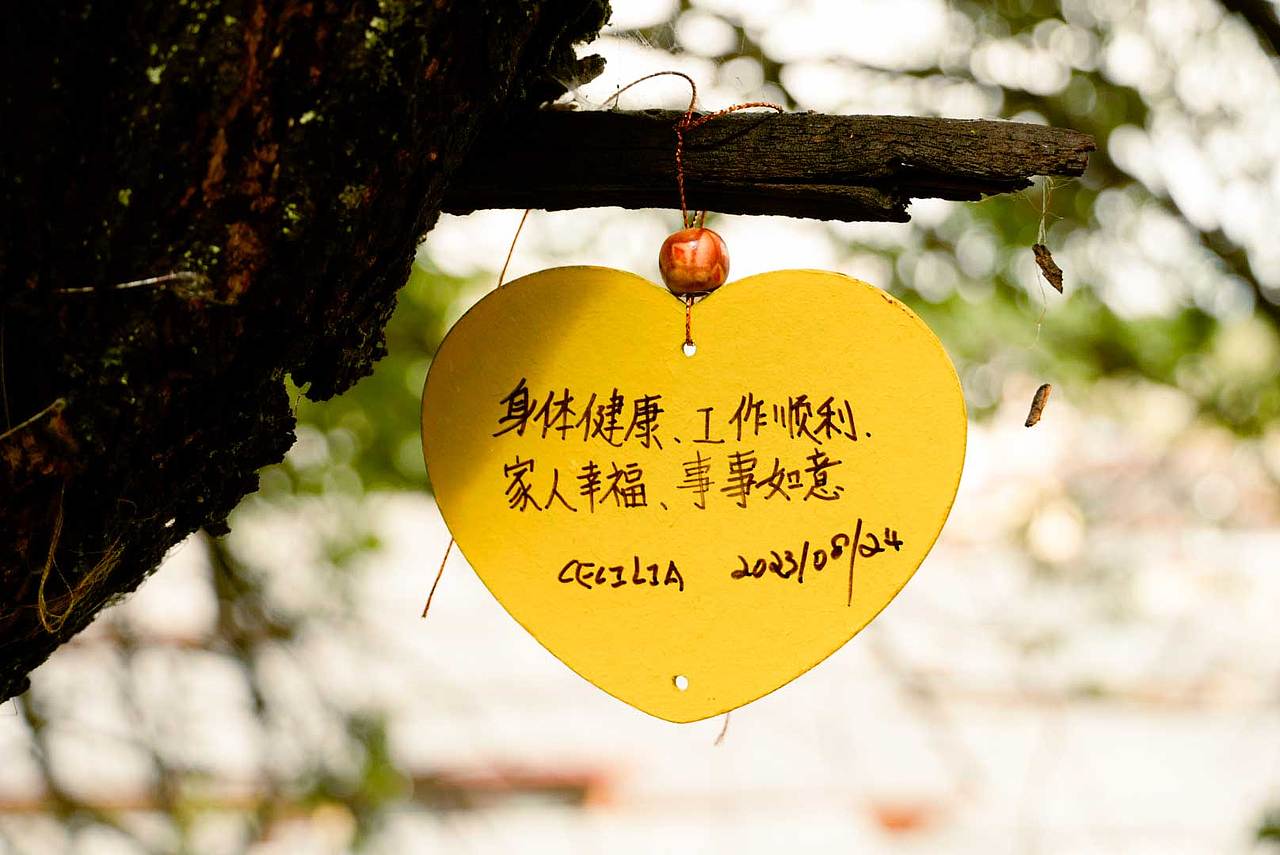 身体健康、工作顺利.
家人幸福、事事如意
CECILIA 2023/08/24